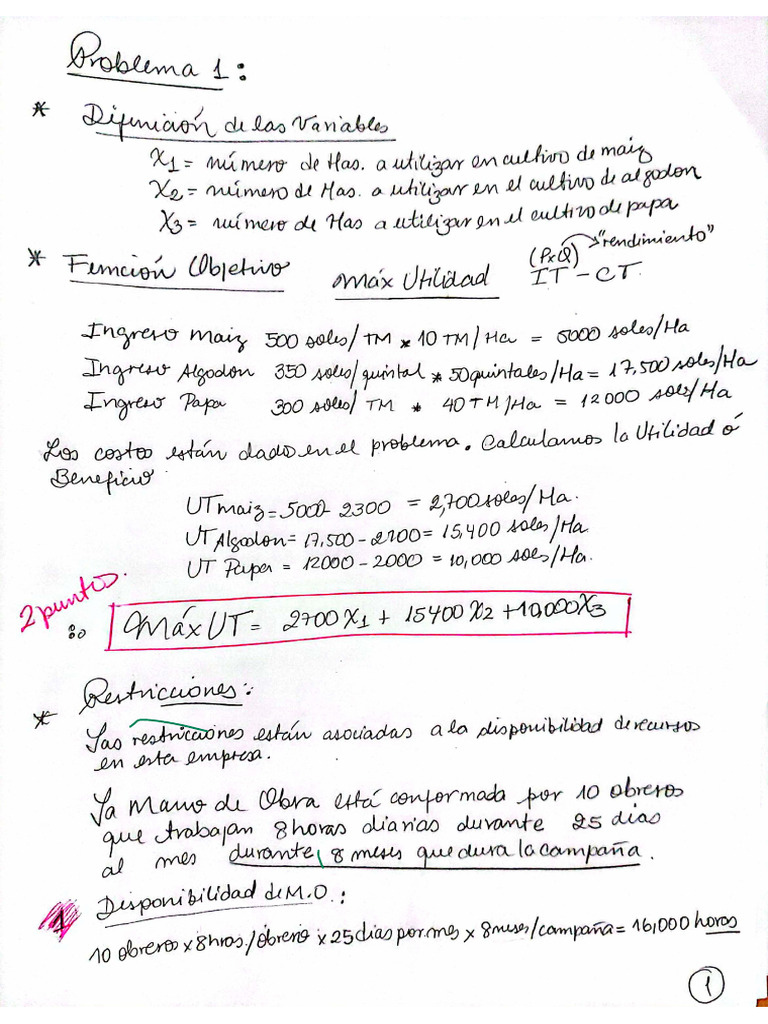 Problema 1:
* Difinición de las Variables
X1 = número de Has. a utilizar en cultivo de maiz
X2 = número de Has. a utilizar en el cultivo de algodon
X3 = número de Has a utilizar en el cultivo de papa
* Función Objetivo máx Utilidad (PxQ) "rendimiento"
IT - CT.
Ingreso maiz 500 soles/TM * 10 TM/Ha = 5000 soles/Ha
Ingreso Algodon 350 soles/quintal * 50 quintales/Ha = 17,500 soles/Ha
Ingreso Papa 300 soles/TM * 40 TM/Ha = 12000 soles/Ha
Los costos están dado en el problema. Calculamos la Utilidad ó
Beneficio
UT maiz = 5000 - 2300 = 2,700 soles/Ha.
UT Algodon = 17,500 - 2100 = 15,400 soles/Ha
UT Papa = 12000 - 2000 = 10,000 soles/Ha.
2 puntos.
∴ Máx UT = 2700 X1 + 15400 X2 + 10,000 X3
* Restricciones:
Las restricciones están asociadas a la disponibilidad de recursos
en esta empresa.
La Mano de Obra está conformada por 10 obreros
que trabajan 8 horas diarias durante 25 dias
al mes durante 8 meses que dura la campaña.
1 Disponibilidad de M.O.:
10 obreros x 8 hros./obrero x 25 dias por mes x 8 meses/campaña = 16,000 horas
1